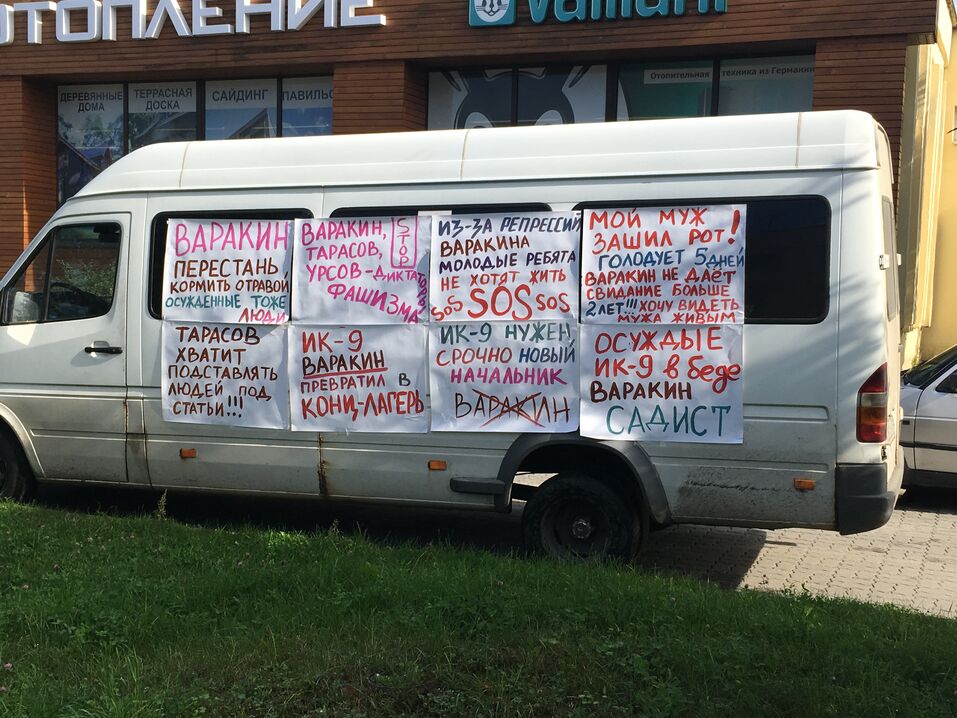 ОТОПЛЕНИЕ
Vaillant
ДЕРЕВЯННЫЕ
ДОМА
ТЕРРАСНАЯ
ДОСКА
САЙДИНГ
ПАВИЛЬО
Отопительная техника из Германии
ВАРАКИН
ПЕРЕСТАНЬ,
КОРМИТЬ ОТРАВОЙ
ОСУЖДЕННЫЕ ТОЖЕ
ЛЮДИ
ВАРАКИН,
ТАРАСОВ,
УРСОВ-ДИКТАТОРЫ
ФАШИЗМА
STOP
ИЗ-ЗА РЕПРЕССИЙ
ВАРАКИНА
МОЛОДЫЕ РЕБЯТА
НЕ ХОТЯТ ЖИТЬ
SOS SOS SOS
МОЙ МУЖ
ЗАШИЛ РОТ!
ГОЛОДУЕТ 5 ДНЕЙ
ВАРАКИН НЕ ДАЁТ
СВИДАНИЕ БОЛЬШЕ
2 ЛЕТ!!! ХОЧУ ВИДЕТЬ
МУЖА ЖИВЫМ
ТАРАСОВ
ХВАТИТ
ПОДСТАВЛЯТЬ
ЛЮДЕЙ ПОД
СТАТЬИ!!!
ИК-9
ВАРАКИН
ПРЕВРАТИЛ В
КОНЦ-ЛАГЕРЬ
ИК-9 НУЖЕН,
СРОЧНО НОВЫЙ
НАЧАЛЬНИК
ВАРАКИН
ОСУЖДЫЕ
ИК-9 В беде
ВАРАКИН
САДИСТ